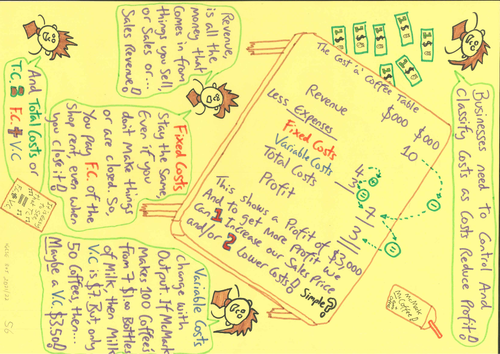 Businesses need to Control and
Classify Costs as Costs Reduce Profit!
The Cost 'a' Coffee Table
$000 $000
Revenue 10
Less Expenses
Fixed Costs 4
Variable Costs 3
Total Costs 7
Profit 3
This shows a Profit of $3,000
And to get More Profit we
Can 1 increase our Sales Price
and/or 2 Lower Costs! Simple!
Revenue,
is all the
money that
Comes in from
things you Sell,
or Sales or...
Sales Revenue!
Fixed Costs
Stay the Same,
Even if you
don't Make things
or are closed. So,
You Pay F.C. of the
Shop rent, even when
you close it!
And Total Costs or
T.C. = F.C. + V.C
Variable Costs
Change with
Output. If McMark
Makes 100 Coffee's
from 7 $1.00 Bottles
of Milk, then Milk
V.C is $7. But, only
50 Coffees, then...
Maybe a V.C $3.50!
McMark
Coffee!
S6